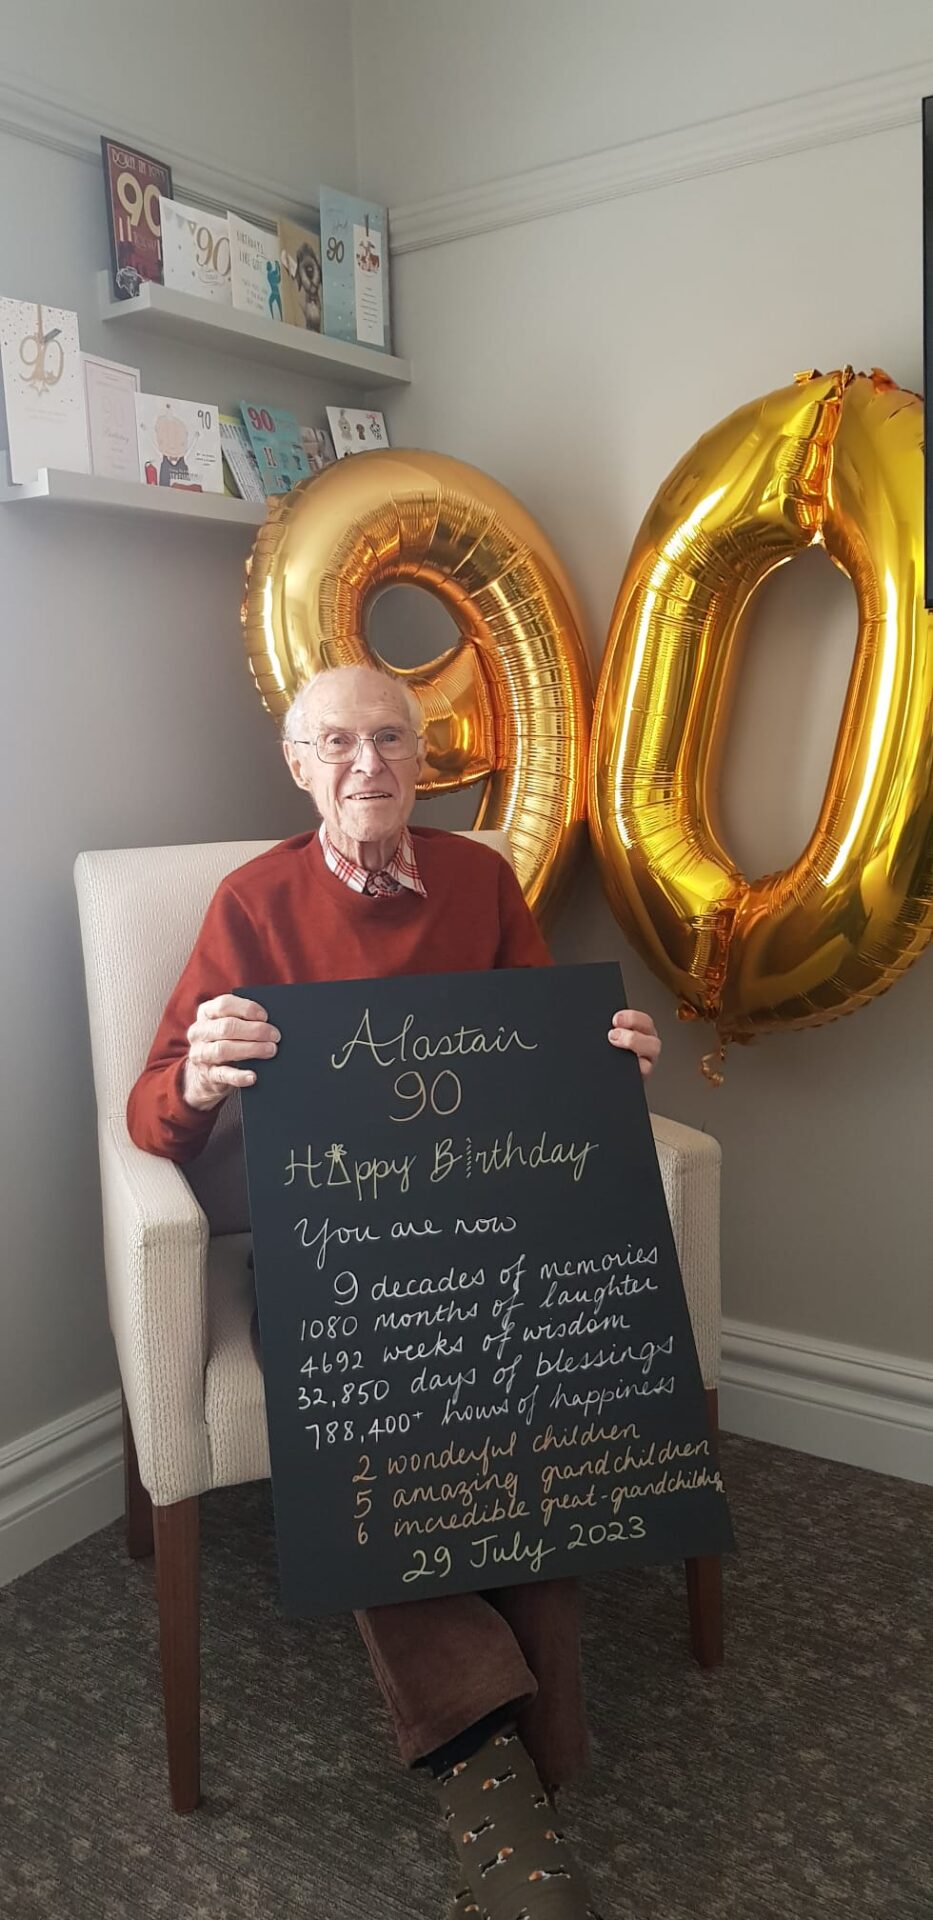 BORN IN 1933
90
90
BIRTHDAYS
LIKE GOLF
90
90
90
90
Alastair
90
Happy Birthday
You are now
9 decades of memories
1080 months of laughter
4692 weeks of wisdom
32,850 days of blessings
788,400+ hours of happiness
2 wonderful children
5 amazing grandchildren
6 incredible great-grandchildren
29 July 2023